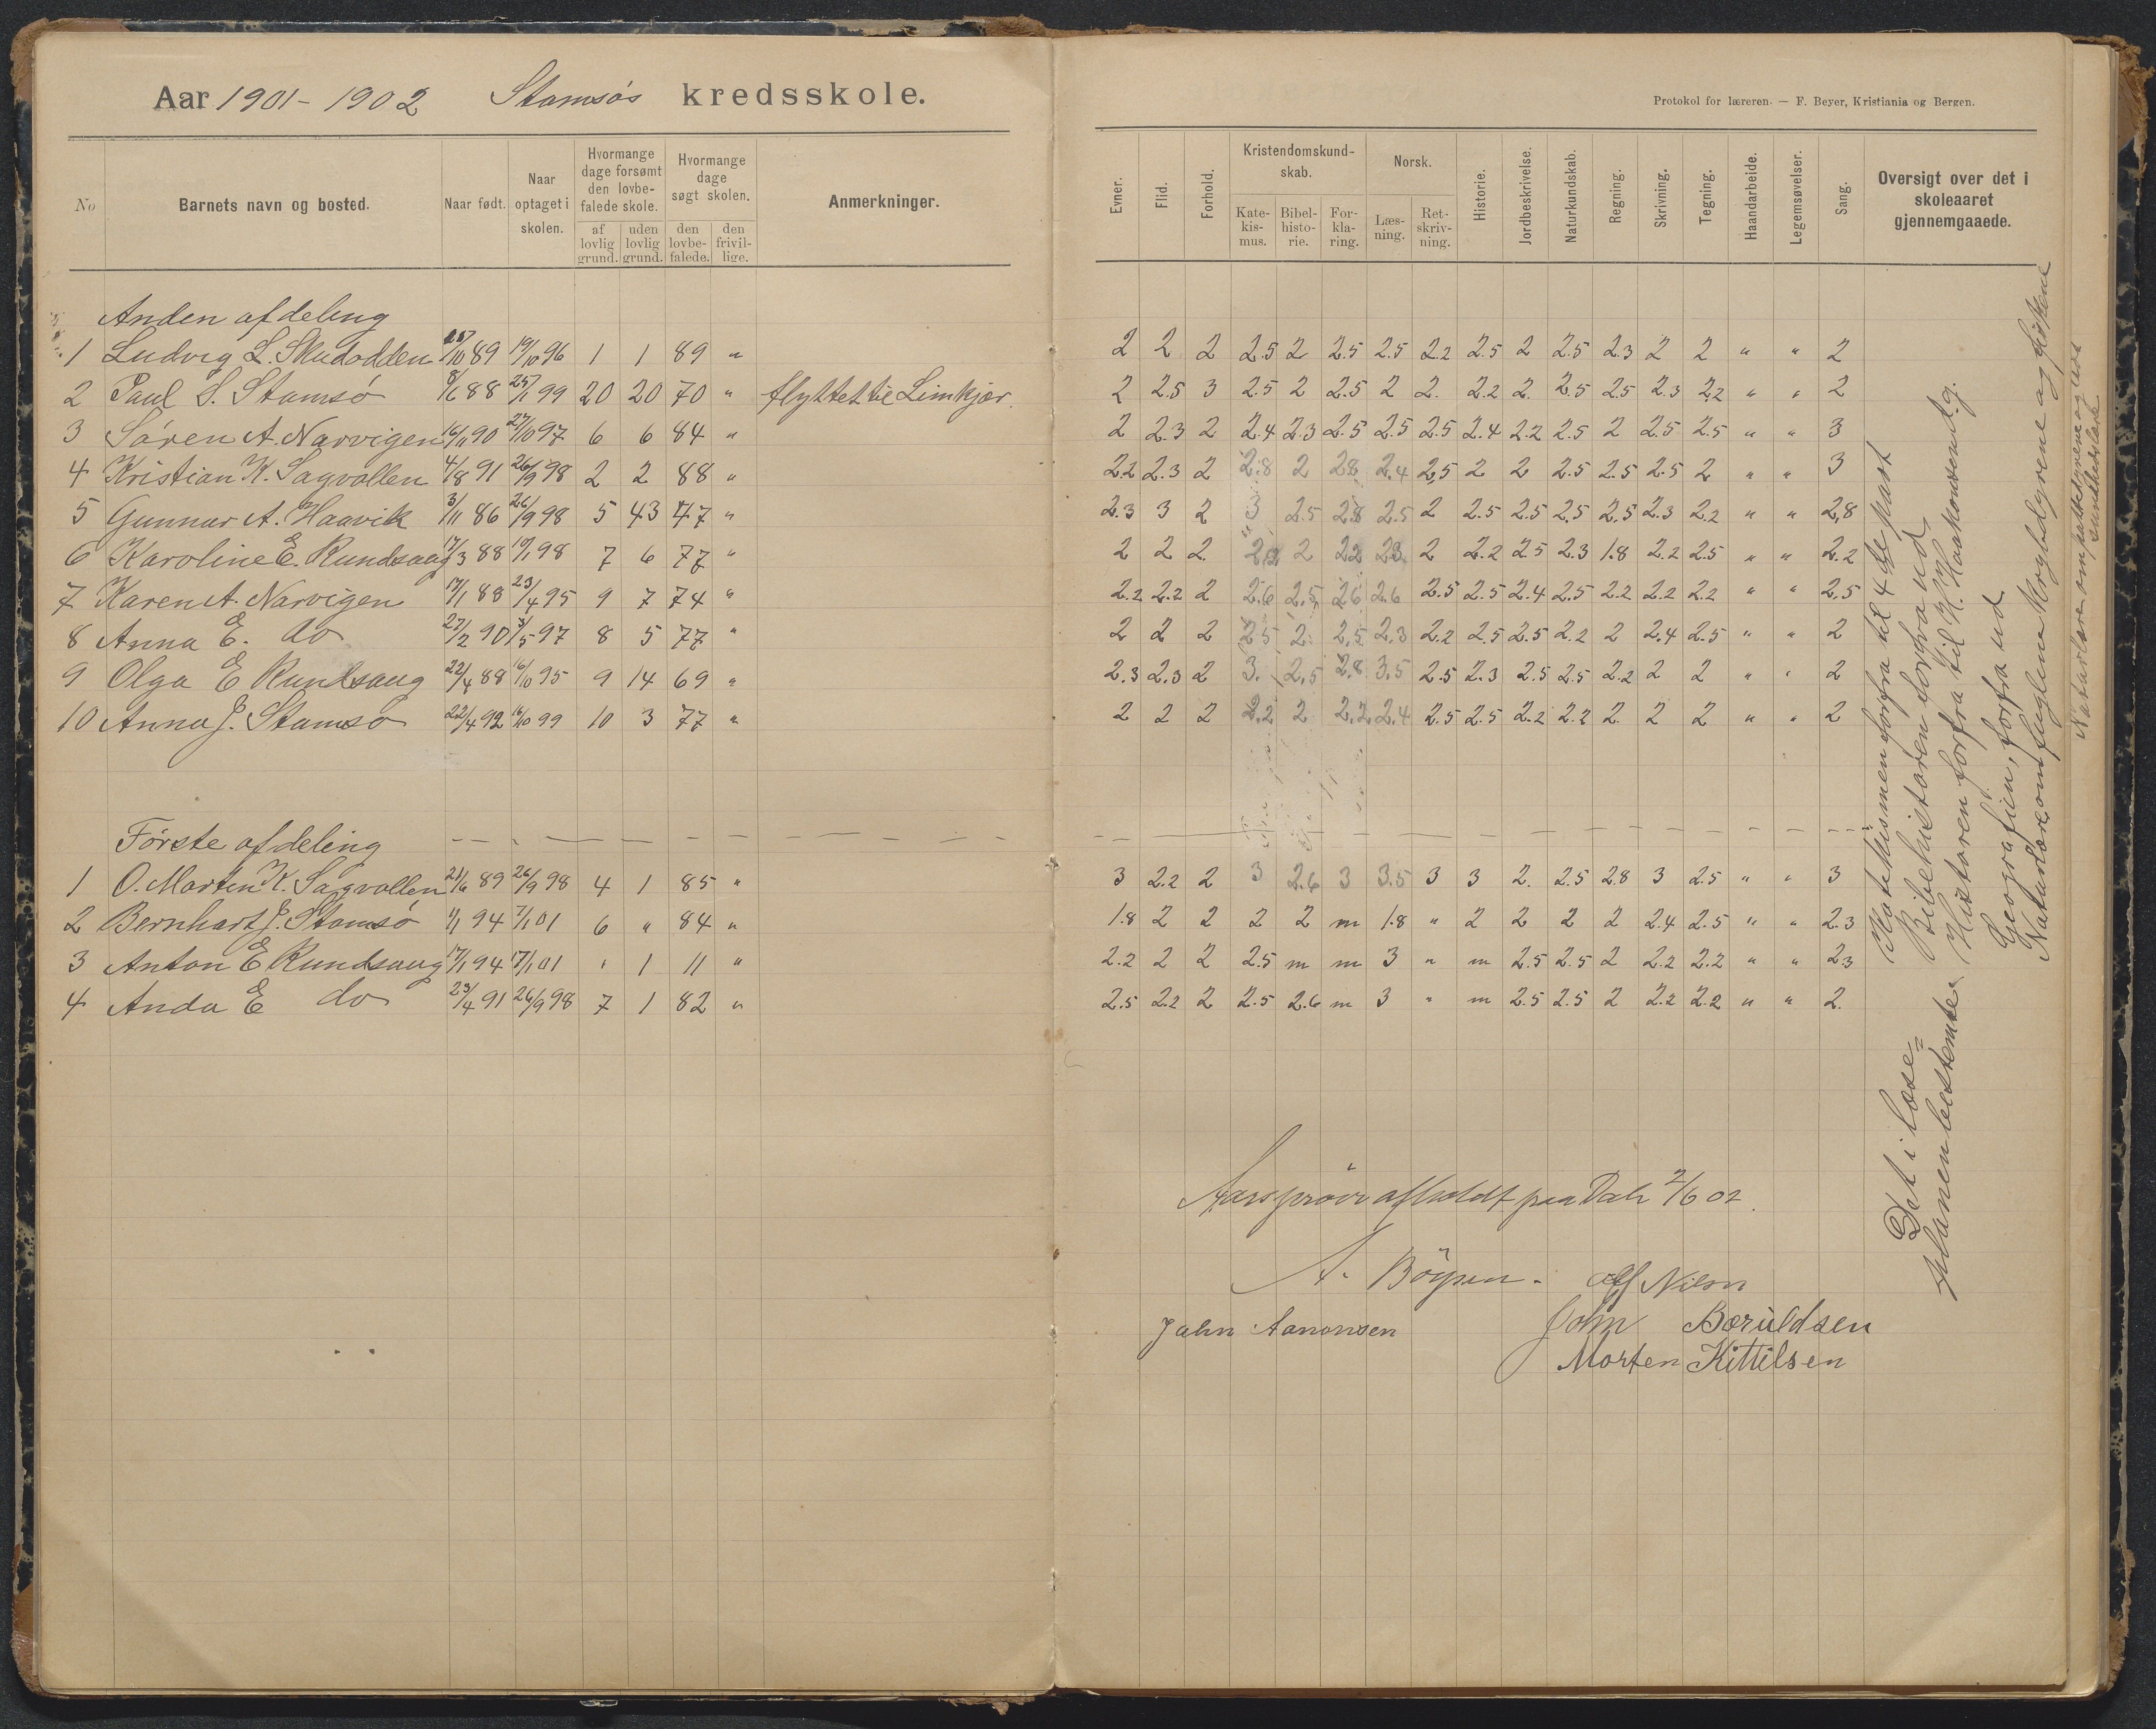 Aar 1901-1902 Stamsøs kredsskole.
Protokol for læreren. — F. Beyer, Kristiania og Bergen.
No Barnets navn og bosted. Naar født. Naar optaget i skolen. Hvormange dage forsømt den lovbefalede skole. af lovlig grund. uden lovlig grund. Hvormange dage søgt skolen. den lovbefalede. den frivillige. Anmerkninger.
Evner. Flid. Forhold. Kristendomskundskab. Katekismus. Bibelhistorie. Forklaring. Norsk. Læsning. Retskrivning. Historie. Jordbeskrivelse. Naturkundskab. Regning. Skrivning. Tegning. Haandarbeide. Legemsøvelser. Sang. Oversigt over det i skoleaaret gjennemgaaede.
Anden afdeling
1 Ludvig L. Skudodden /10 89 19/10 96 1 1 89 " 2 2 2 2.5 2 2.5 2.5 2.2 2.5 2 2.5 2.3 2 2 " " 2
2 Paul S. Stamsø 8/6 88 25/1 99 20 20 70 " flyttet til Limkjær. 2 2.5 3 2.5 2 2.5 2 2. 2.2 2. 2.5 2.5 2.3 2.2 " " 2
3 Søren A. Narvigen 16/11 90 27/10 97 6 6 84 " 2 2.3 2 2.4 2.3 2.5 2.5 2.5 2.4 2.2 2.5 2 2.5 2.5 " " 3
4 Kristian K. Sagvollen 4/8 91 26/9 98 2 2 88 " 2.2 2.3 2 2.8 2 2.8 2.4 2,5 2 2 2.5 2.5 2.5 2 " " 3
5 Gunnar A. Haavik 3/11 86 26/9 98 5 43 47 " 2.3 3 2 3 2.5 2.8 2.5 2 2.5 2.5 2,5 2,5 2.3 2.2 " " 2,8
6 Karoline E. Rundsaug 17/3 88 19/1 98 7 6 77 " 2 2 2. 2,2 2 2.2 2.3 2 2.2 2.5 2.3 1.8 2.2 2.5 " " 2.2
7 Karen A. Narvigen 17/1 88 23/4 95 9 7 74 " 2.2 2.2 2 2.6 2,5 2.6 2.6 2.5 2.5 2.4 2.5 2.2 2.2 2.2 " " 2.5
8 Anna E. do 27/2 90 3/5 97 8 5 77 " 2 2 2 2.5 2. 2,5 2,3 2.2 2.5 2.5 2.2 2 2.4 2.5 " " 2
9 Olga E Rundsaug 22/4 88 16/10 95 9 14 69 " 2.3 2.3 2 3. 2,5 2.8 3.5 2.5 2.3 2.5 2.5 2.2 2 2 " " 2
10 Anna J. Stamsø 22/4 92 16/10 99 10 3 77 " 2 2 2 2,2 2 2,2 2.4 2.5 2.5 2.2 2.2 2. 2 2 " " 2
Første afdeling
1 O. Marten K. Sagvollen 21/6 89 26/9 98 4 1 85 " 3 2.2 2 3 2.6 3 3.5 3 3 2. 2.5 2.8 3 2.5 " " 3
2 Bernhart J. Stamsø 4/1 94 7/1 01 6 " 84 " 1.8 2 2 2 2 m 1.8 " 2 2 2 2 2.4 2.5 " " 2.3
3 Anton E Rundsaug 17/1 94 17/1 01 " 1 11 " 2.2 2 2 2.5 m m 3 " m 2.5 2.5 2 2.2 2.2 " " 2.3
4 Anda E do 23/4 91 26/9 98 7 1 82 " 2.5 2.2 2 2.5 2.6 m 3 " m 2.5 2.5 2 2.2 2.2 " " 2.
Det i læse-
planen bestemte.
Katekismen forfra til 4de part
Bibelhistorien forfra ud
Historien forfra til H. Haakonsen d.g.
Geografien, forfra ud
Naturlære om fuglene krybdyrene og fiskene
Naturlære om pattedyrene og lavs
sundhedslære
Aarsprøve afholdt paa Dale 2/6 02.
A. Böysen. Alf Nilsen
Jahn Aanonsen John Boruldsen
Morten Kittilsen